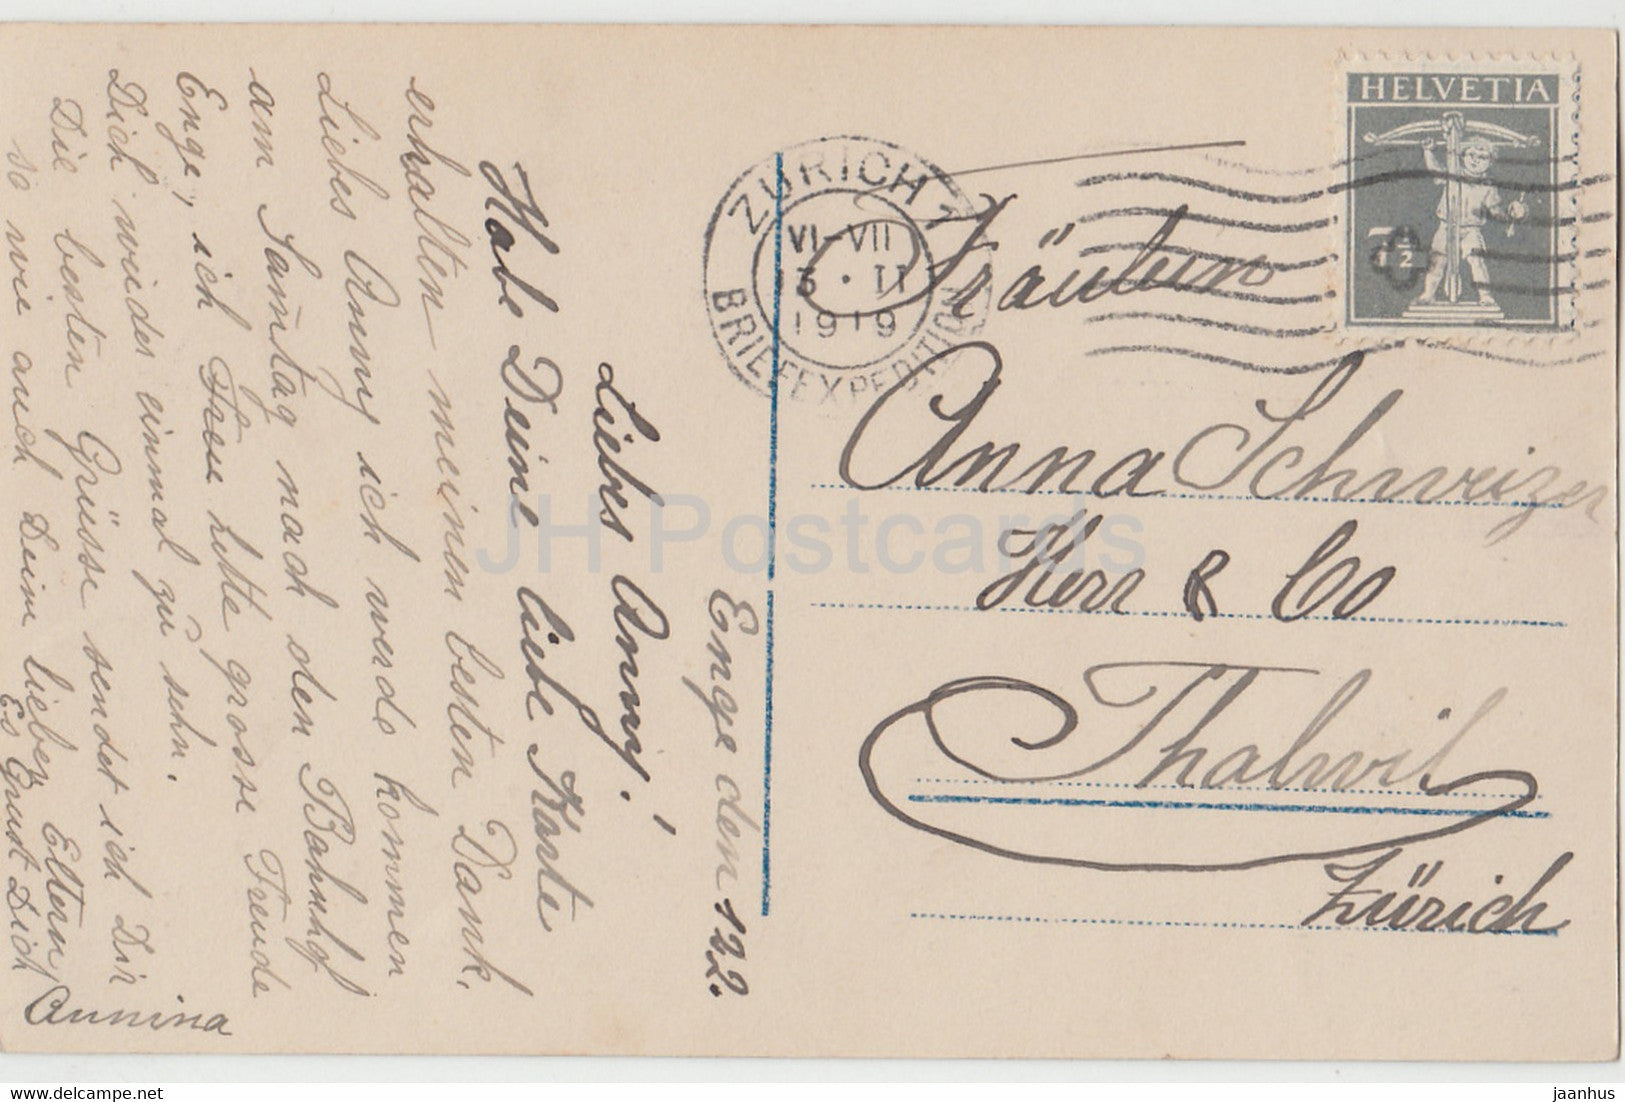 HELVETIA
7 1/2
ZÜRICH 1
VI-VII
13 · II
1919
BRIEFEXPEDITION
Fräulein
Anna Schweizer
Herr & Co
Thalwil
Zürich
Enge den 12 2.
Liebes Anny!
Habe Deine liebe Karte
erhalten meinen besten Dank.
Liebes Anny ich werde kommen
am Samstag nach den Bahnhof
Enge, ich Freu hette grosse Freude
Dich wieder einmal zu sehn.
Die besten Grüsse sendet ich Dir
so wie auch Dein lieben Eltern
Es Grüst Dich
Annina
JH Postcards
www.delcampe.net
jaanhus